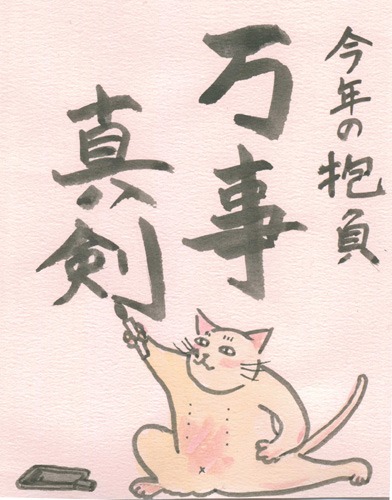 今年の抱負
万事
真剣